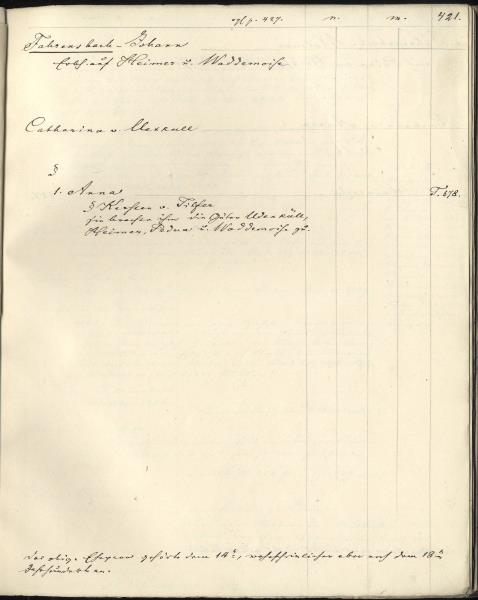 vgl p. 427. n. m. 421.
Fahrensbach - Johann
Erbh. auf Heimer u. Waddemois
Catharina v. Uexkull
§
1. Anna T. 678.
§ Kersten v. Tilsen
sie brachte ihm die Güter Udenküll,
Heimer, Pedua u. Waddemois zu.
Das obige Ehepaar gehörte dem 14t, wahrscheinlicher aber erst dem 18n
Jahrhundert an.